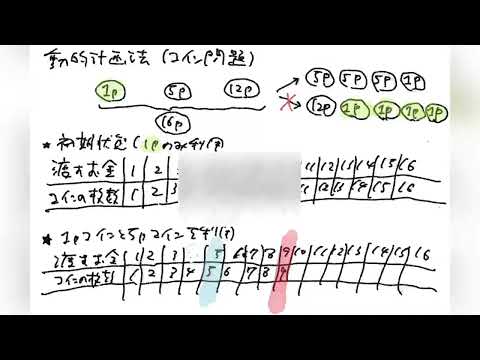 動的計画法 (コイン問題)
1p 5p 12p → 5p 5p 5p 1p
16p 12p 1p 1p 1p 1p
★ 初期状態 (1pのみ利用)
渡すお金 1 2 12 13 14 15 16
コインの枚数 1 2 3 12 13 14 15 16
★ 1pコインと5pコインを利用
渡すお金 1 2 3 5 6 7 8 9 10 11 12 13 14 15 16
コインの枚数 1 2 3 4 5 6 7 8 9